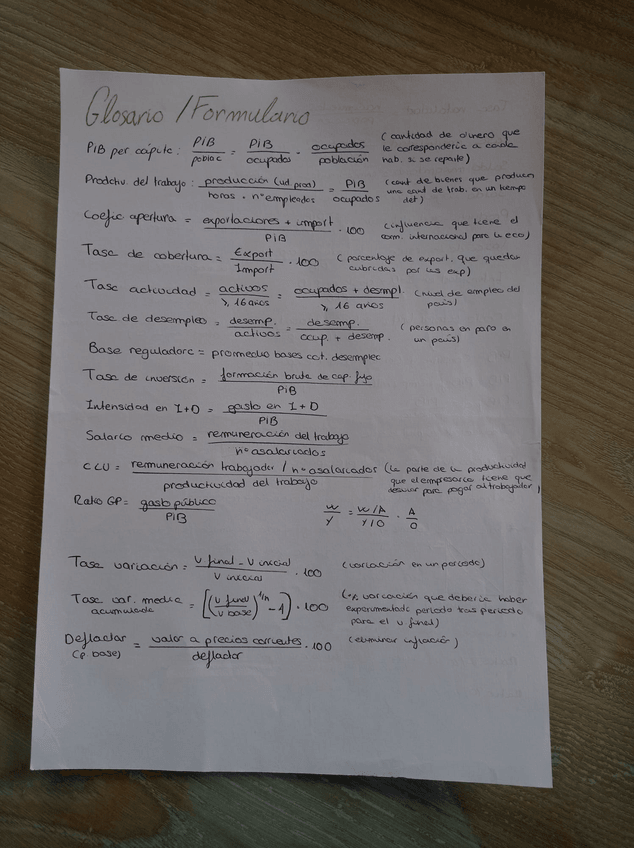 Glosario / Formulario
PiB per cápita: PiB / poblac = PiB / ocupados · ocupados / población (cantidad de dinero que
le correspondería a cada
hab. si se reparte)
Prodctiv. del trabajo: producción (ud. prod) / horas · nº empleados = PiB / ocupados (cant. de bienes que producen
una cant de trab. en un tiempo
det)
Coefic apertura = exportaciones + import / PiB · 100 (influencia que tiene el
com. internacional para la eco)
Tasa de cobertura = Export / Import · 100 (porcentaje de export. que quedan
cubridas por las exp)
Tasa actividad = activos / ≥ 16 años = ocupados + desmpl. / ≥ 16 años (nivel de empleo del
país)
Tasa de desempleo = desemp. / activos = desemp. / ocup. + desemp. (personas en paro en
un país)
Base reguladora = promedio bases cot. desempleo
Tasa de inversión = formación bruta de cap. fijo / PiB
Intensidad en I+D = gasto en I+D / PiB
Salario medio = remuneración del trabajo / nº asalariados
CLU = remuneración trabajador / nº asalariados / productividad del trabajo (la parte de la productividad
que el empresario tiene que
para pagar al trabajador)
Ratio GP = gasto público / PiB W / Y = W/A / Y/O · A / O
Tasa variación = V final - V inicial / V inicial · 100 (variación en un periodo)
Tasa var. media acumulada = [(V final / V base)^1/n - 1] · 100 (% variación que debería haber
experimentado periodo tras periodo
para el v final)
Deflactar (p. base) = valor a precios corrientes / deflador · 100 (eliminar inflación)